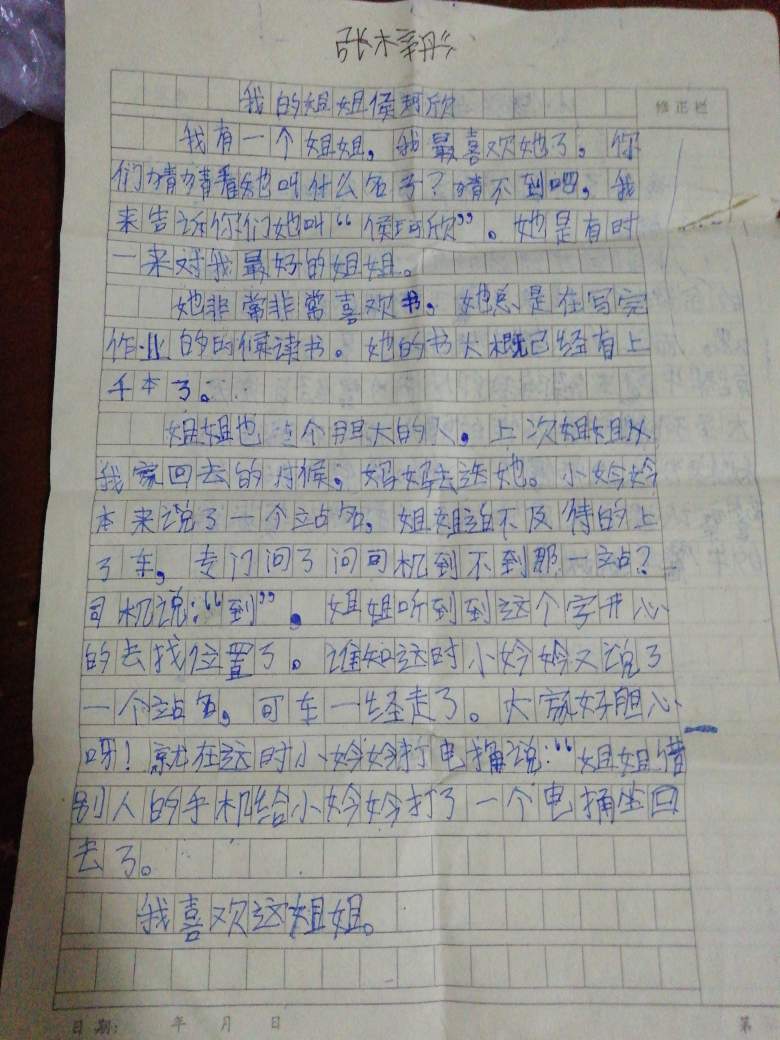 张梓彤
我的姐姐侯珂欣
修正栏
我有一个姐姐，我最喜欢她了。你
们猜猜看她叫什么名子？晴不到吧，我
来告诉你们她叫“侯珂欣”。她是有时
一来对我最好的姐姐。
她非常非常喜欢书。她总是在写完
作业的时候读书。她的书大概已经有上
千本了。
姐姐也是个胆大的人。上次姐姐从
我家回去的时候，妈妈去送她。小妗妗
本来说了一个站名，姐姐迫不及待的上
了车，专门问了问司机到不到那一站？
司机说：“到”。姐姐听到到这个字开心
的去找位置了。谁知这时小妗妗又说了
一个站名，可车一经走了。大家好胆心
呀！就在这时小妗妗打电捅说：“姐姐借
别人的手机给小妗妗打了一个电捅坐回
去了。
我喜欢这姐姐。
日期： 年 月 日
第